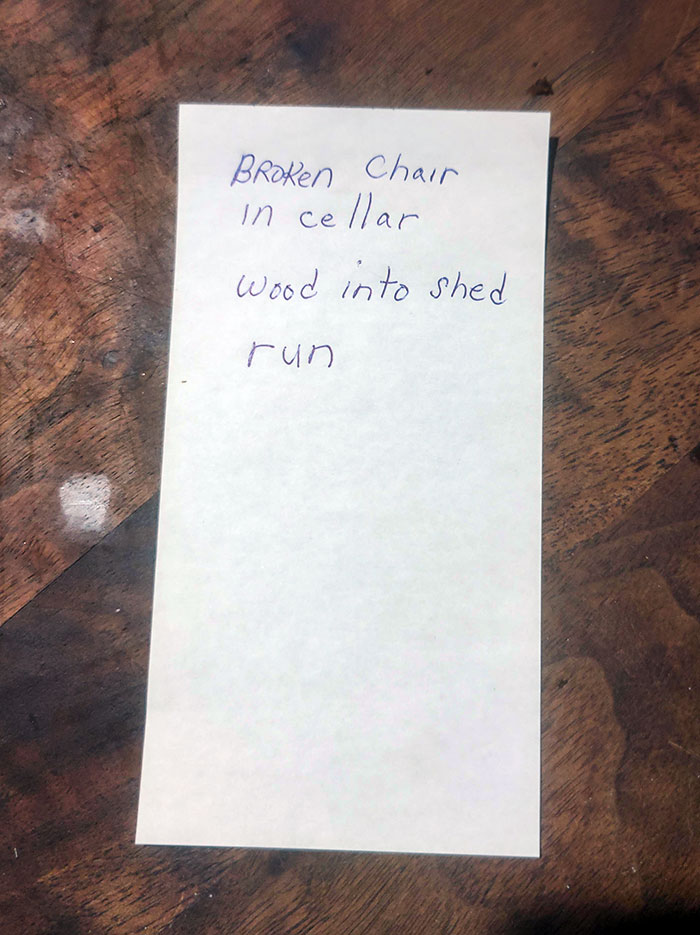 BROKen Chair
in cellar
wood into shed
run